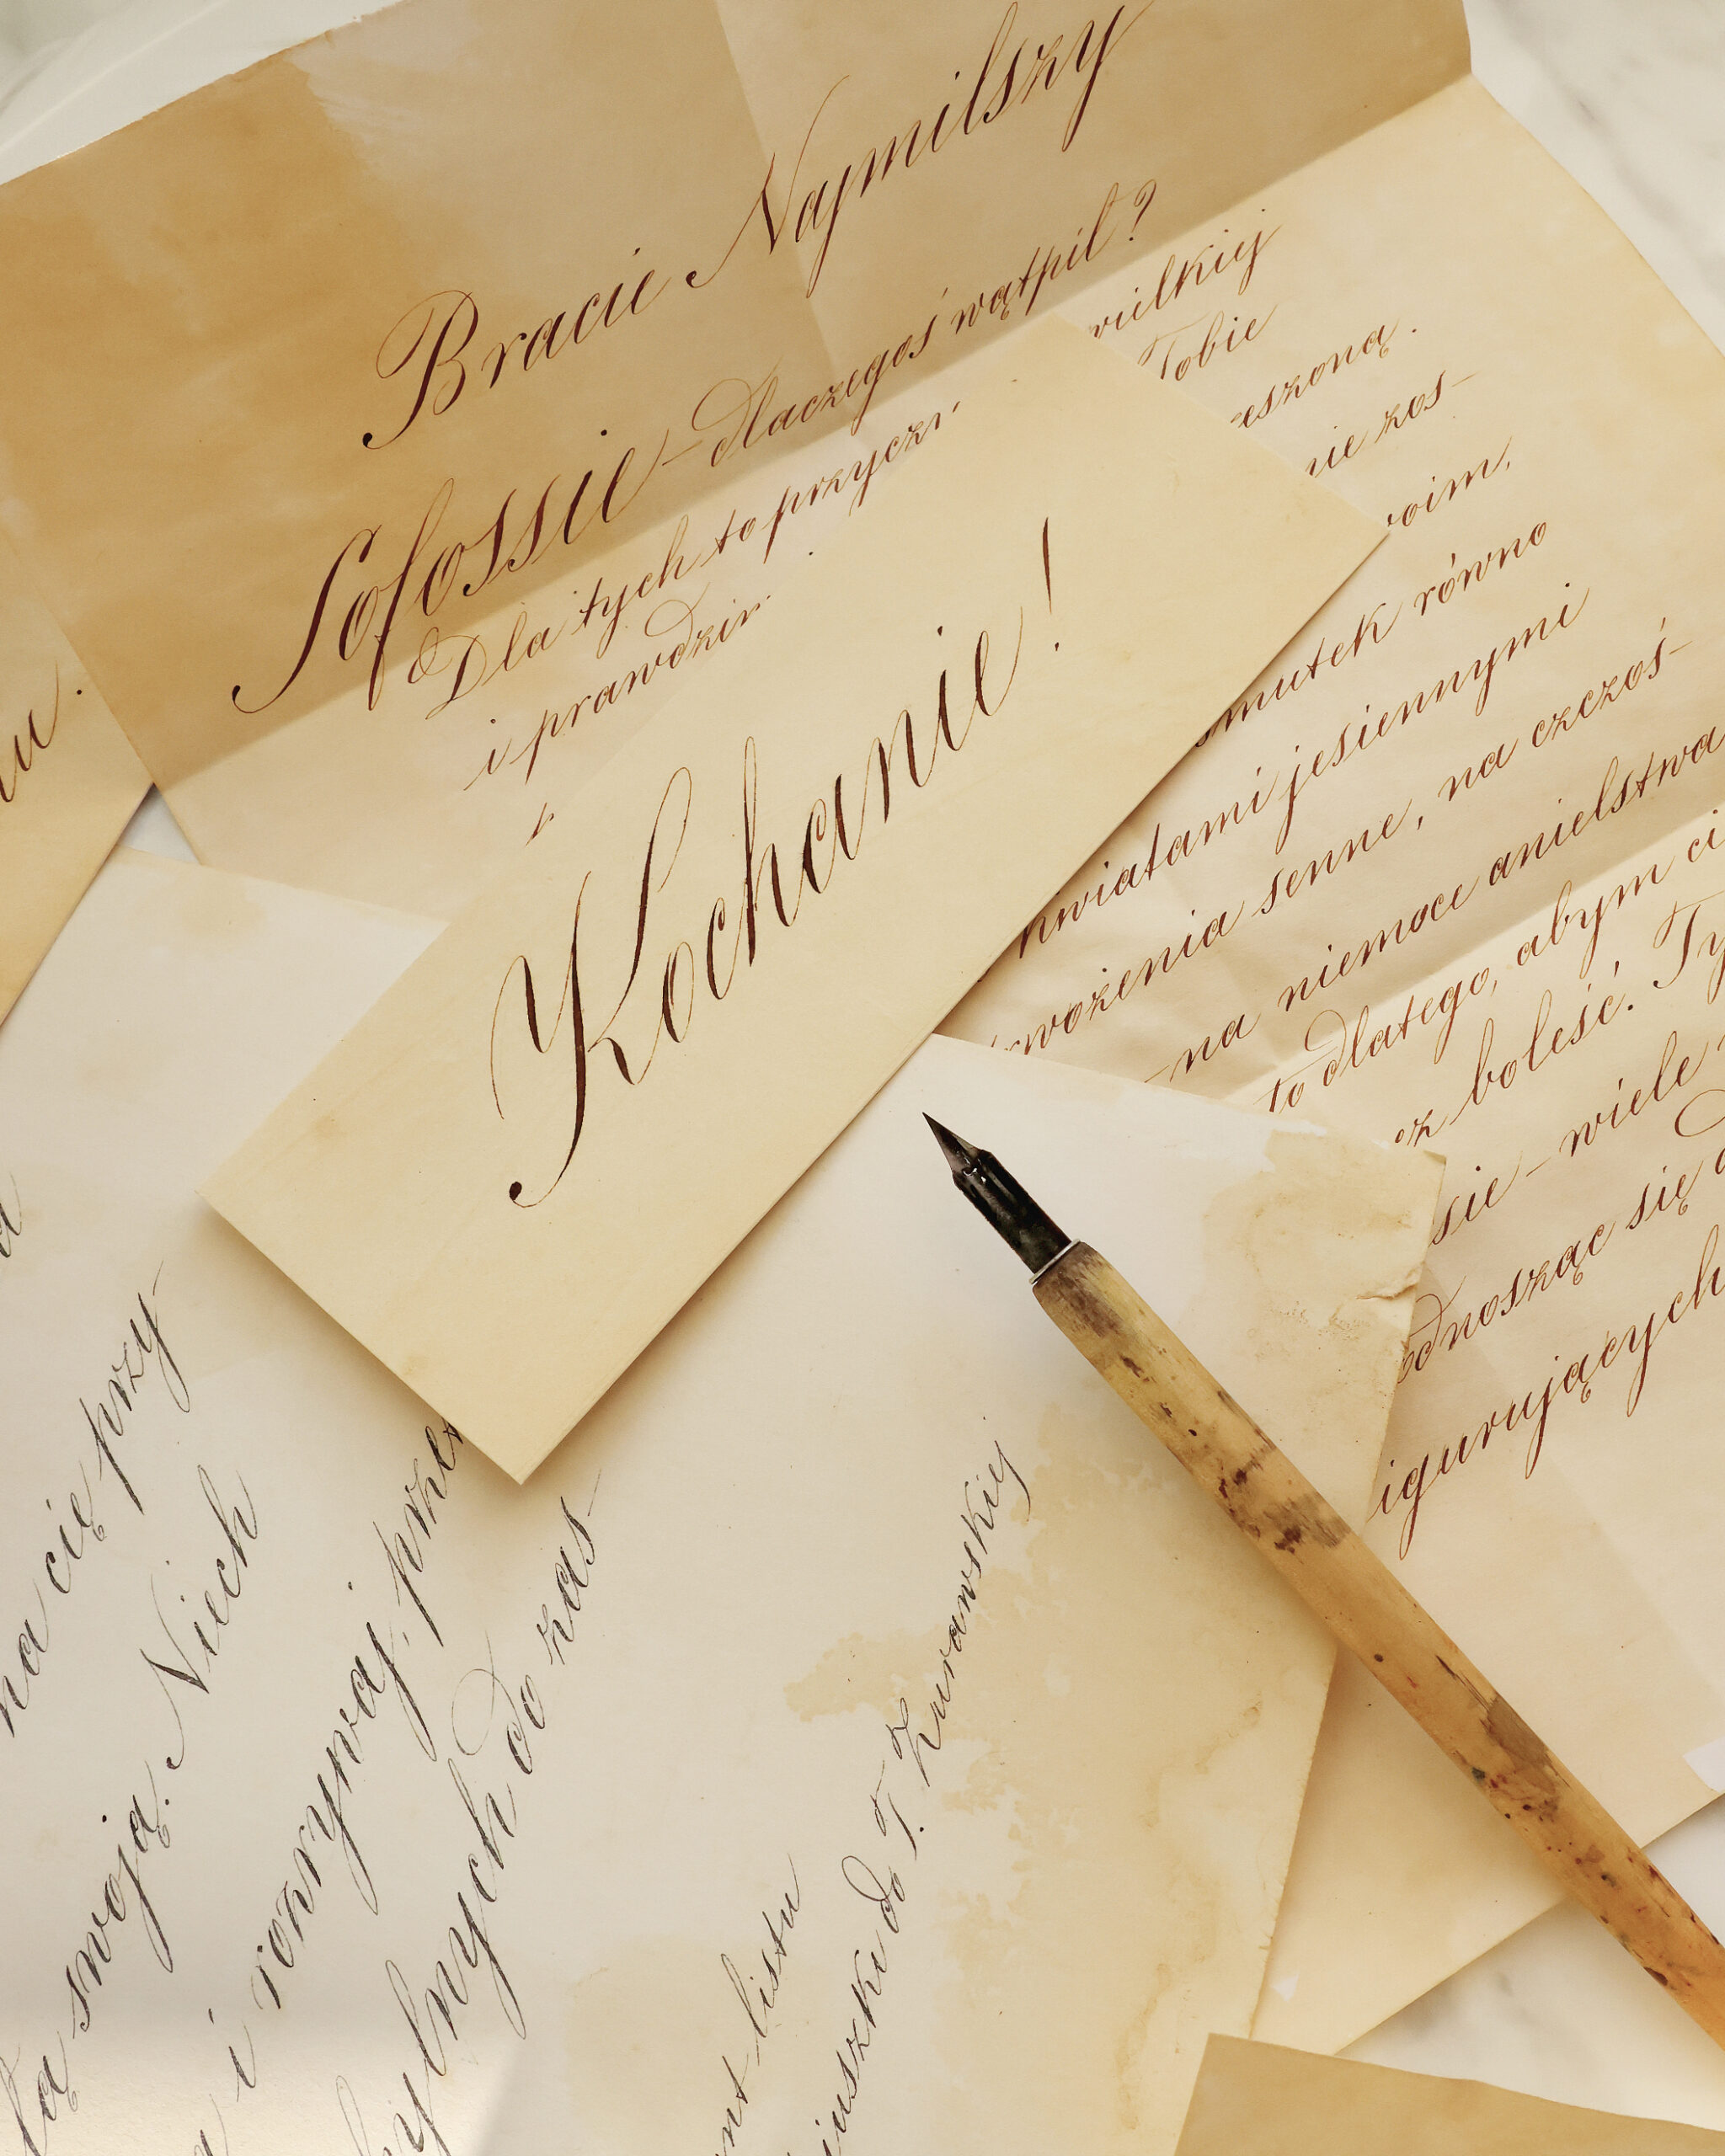 Bracie Najmilszy
Sofossie – dlaczegoś wątpił?
Dla tych to przyczyn
i prawdziw
wielkiej
Tobie
eszoną.
nie zos-
woim,
smutek równo
kwiatami jesiennymi
tworzenia senne, na czczoś-
– na niemoce anielstwa
to dlatego, abym ci
oz boleść. Ty
sie – wiele
ednosząc się
igurujących
Kochanie!
na cię przy-
swoją. Niech
i rozrywaj, prze
ylnych do zas-
nt listu
iuszki do T. Żurawskiej